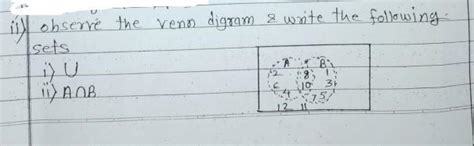 ii) observe the venn digram & write the following
sets
i) U
ii) A∩B
A B
2 8 1
6 10 3
4 7 5
12 11